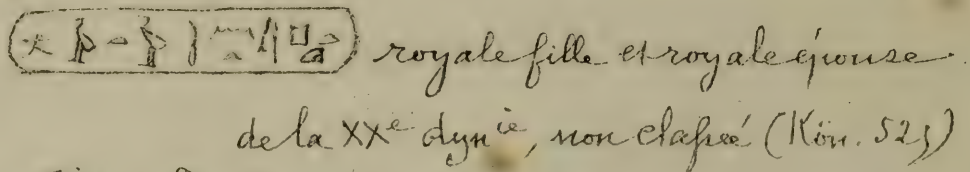 royale fille et royale épouse
de la XXe dynie, non classée (Kön. 525)